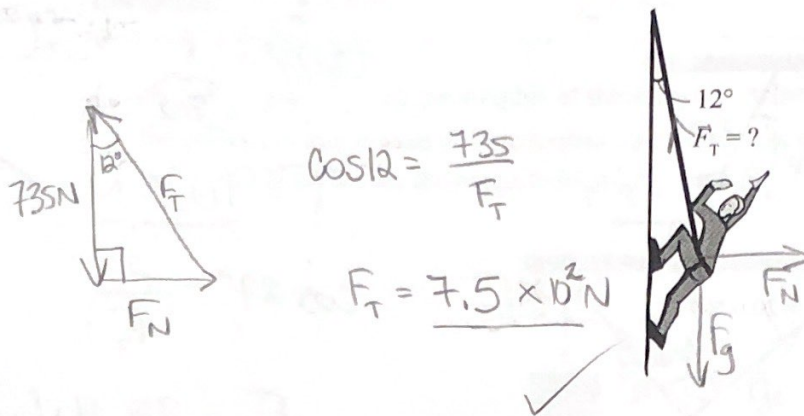 12°
735N
F_T
F_N
cos12 = 735/F_T
F_T = 7.5 × 10² N
12°
F_T = ?
F_N
F_g